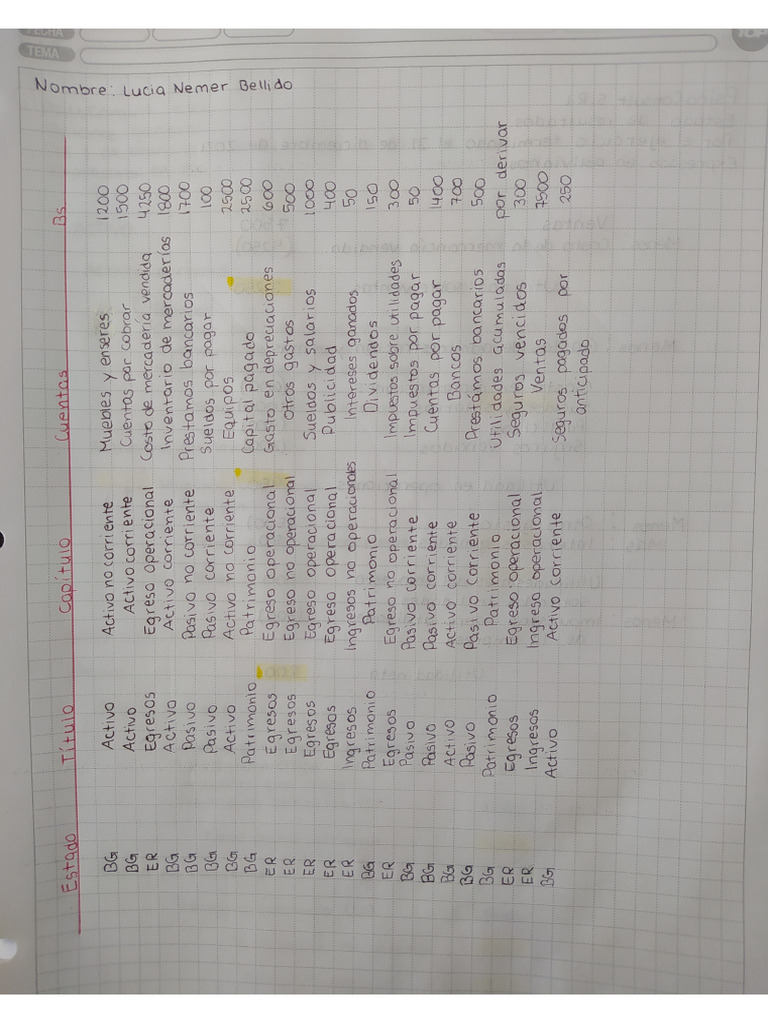 FECHA
TEMA
TOP
Nombre: Lucia Nemer Bellido
Estado Título Capítulo Cuentas Bs
BG Activo Activo no corriente Muebles y enseres 1200
BG Activo Activo corriente Cuentas por cobrar 1500
ER Egresos Egreso operacional Costo de mercadería vendida 4250
BG Activo Activo corriente Inventario de mercaderías 1800
BG Pasivo Pasivo no corriente Prestamos bancarios 1700
BG Pasivo Pasivo corriente Sueldos por pagar 100
BG Activo Activo no corriente Equipos 2500
BG Patrimonio Patrimonio Capital pagado 2500
ER Egresos Egreso operacional Gasto en depreciaciones 600
ER Egresos Egreso no operacional Otros gastos 500
ER Egresos Egreso operacional Sueldos y salarios 1000
ER Egresos Egreso operacional Publicidad 400
ER Ingresos Ingresos no operacionales Intereses ganados 50
BG Patrimonio Patrimonio Dividendos 150
ER Egresos Egreso no operacional Impuestos sobre utilidades 300
BG Pasivo Pasivo corriente Impuestos por pagar 50
BG Pasivo Pasivo corriente Cuentas por pagar 1400
BG Activo Activo corriente Bancos 700
BG Pasivo Pasivo corriente Prestámos bancarios 500
BG Patrimonio Patrimonio Utilidades acumuladas por derivar
ER Egresos Egreso operacional Seguros vencidos 300
ER Ingresos Ingreso operacional Ventas 7500
BG Activo Activo corriente Seguros pagados por 250
anticipado